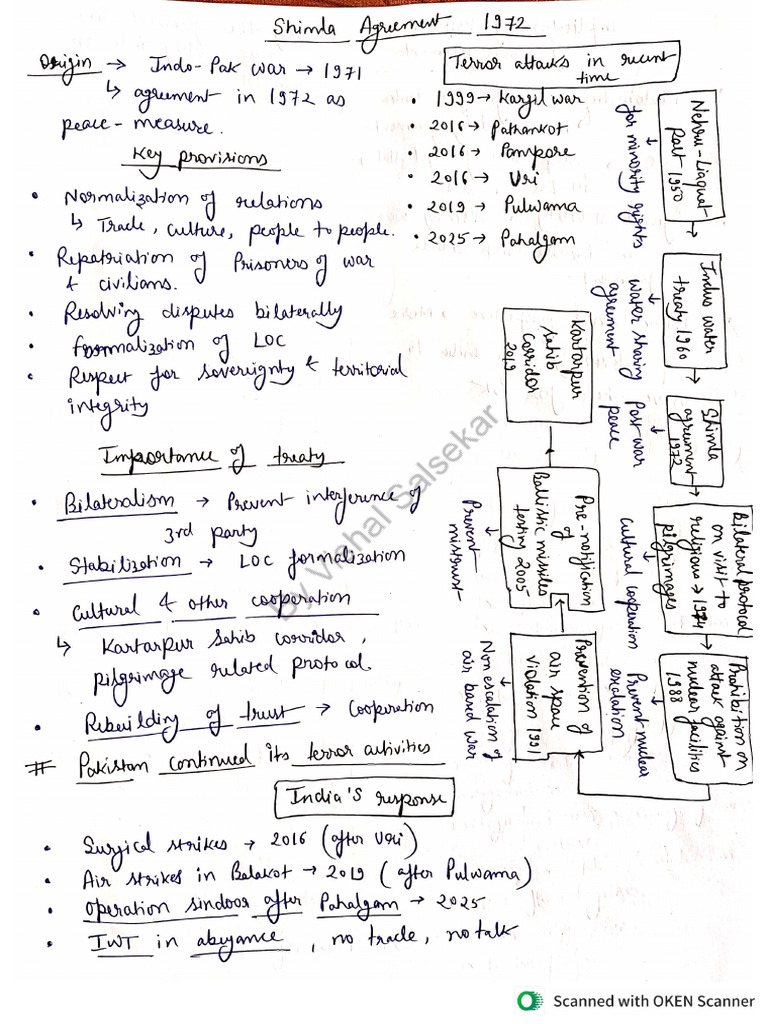 Shimla Agreement 1972
Origin → Indo-Pak war → 1971
↳ agreement in 1972 as
peace-measure.
Key provisions
• Normalization of relations
↳ Trade, culture, people to people.
• Repatriation of Prisoners of war
& civilians.
• Resolving disputes bilaterally
• formalization of LOC
• Respect for sovereignty & territorial
integrity
Importance of treaty
• Bilateralism → Prevent interference of
3rd party
• Stabilization → LOC formalization
• Cultural & other cooperation
↳ Kartarpur Sahib corridor,
pilgrimage related protocol.
• Rebuilding of trust → Cooperation
# Pakistan continued its terror activities
Terror attacks in recent
time
• 1999 → Kargil war
• 2016 → Pathankot
• 2016 → Pampore
• 2016 → Uri
• 2019 → Pulwama
• 2025 → Pahalgam
Nehru-Liaquat
pact 1950
for minority rights
Indus water
treaty 1960
water sharing
agreement
Shimla
agreement
1972
Post-war
peace
Bilateral protocol
on visit to
religious → 1974
pilgrimages
Cultural cooperation
Prohibition on
attack against
nuclear facilities
1988
Prevent nuclear
escalation
Prevention of
air space
violation 1991
Non escalation of
air based war
Pre-notification
of
Ballistic missiles
testing 2005
Prevent
mistrust
Kartarpur
sahib
corridor
2019
India's response
• Surgical strikes → 2016 (after Uri)
• Air strikes in Balakot → 2019 (after Pulwama)
• Operation sindoor after Pahalgam → 2025
• IWT in abeyance, no trade, no talk
By Vishal Salsekar
Scanned with OKEN Scanner